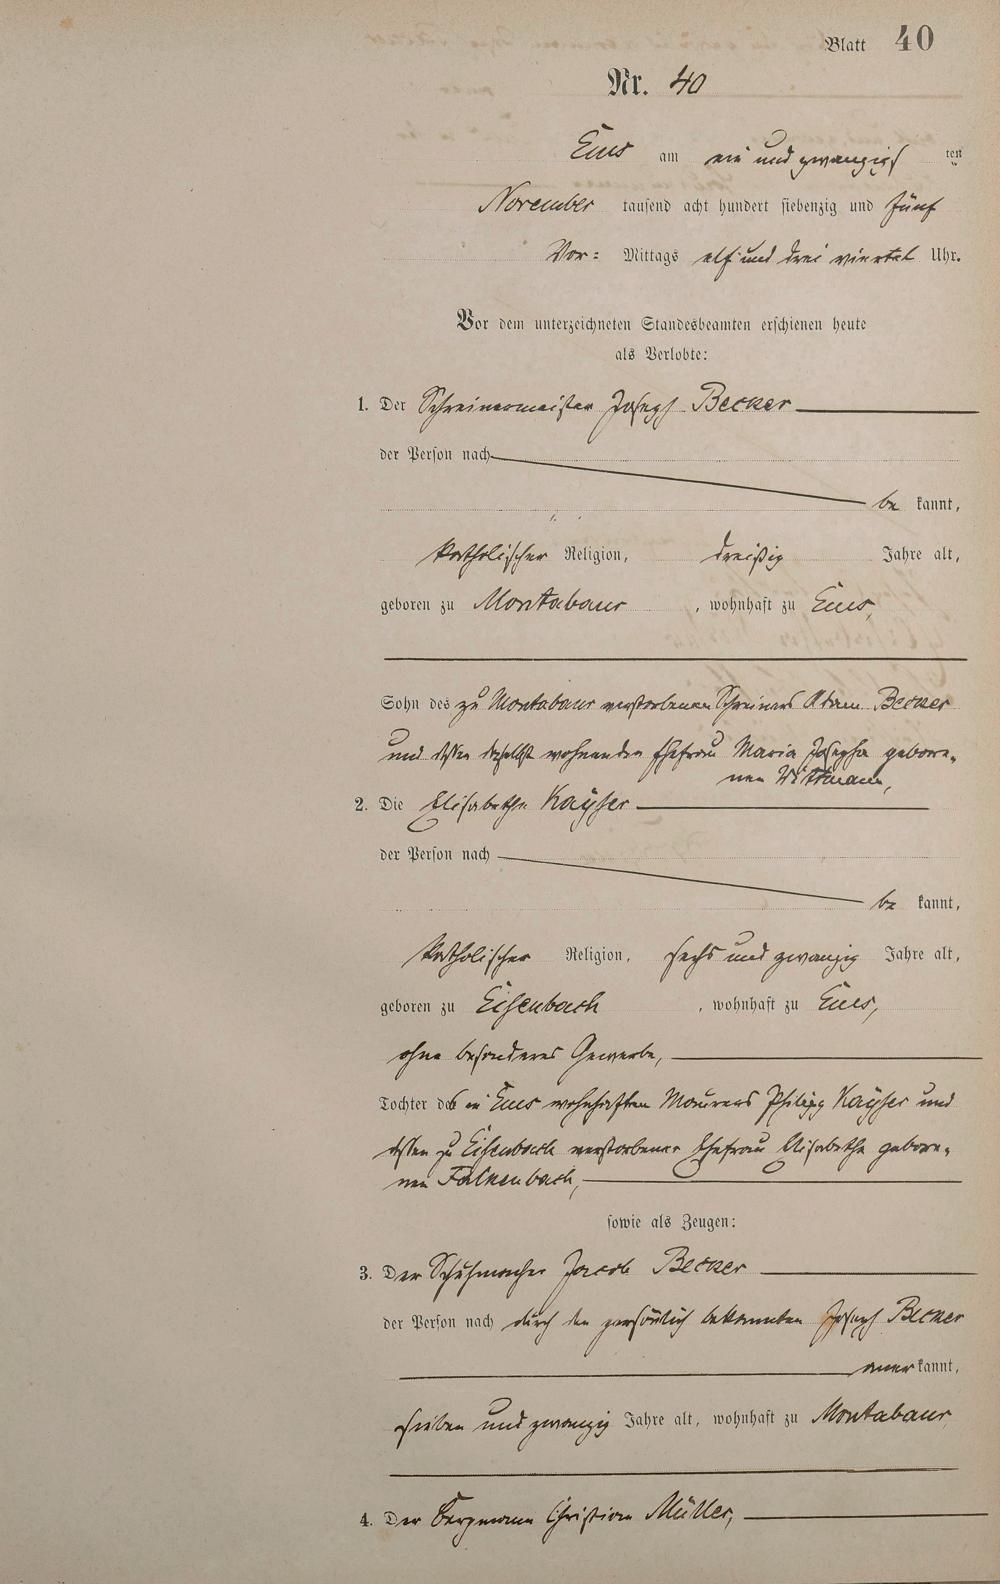 Blatt 40
Nr. 40
Ems am ein und zwanzigs ten
November tausend acht hundert siebenzig und fünf
Vor= Mittags elf und drei viertel Uhr.
Vor dem unterzeichneten Standesbeamten erschienen heute
als Verlobte:
1. Der Schreinermeister Joseph Becker
der Person nach
be kannt,
katholischer Religion, dreißig Jahre alt,
geboren zu Montabaur, wohnhaft zu Ems,
Sohn des zu Montabaur verstorbenen Schreiners Adam Becker
und dessen daselbst wohnenden Ehefrau Maria Josepha gebore-
nen Wittmann,
2. Die Elisabethe Kaÿser
der Person nach
be kannt,
katholischer Religion, sechs und zwanzig Jahre alt,
geboren zu Eisenbach, wohnhaft zu Ems,
ohne besonderes Gewerbe,
Tochter des in Ems wohnhaften Maurers Philipp Kaÿser und
dessen zu Eisenbach verstorbener Ehefrau Elisabethe gebore-
nen Falkenbach,
sowie als Zeugen:
3. Der Schuhmacher Jacob Becker
der Person nach durch den persönlich bekannten Joseph Becker
aner kannt,
sieben und zwanzig Jahre alt, wohnhaft zu Montabaur,
4. Der Bergmann Christian Müller,